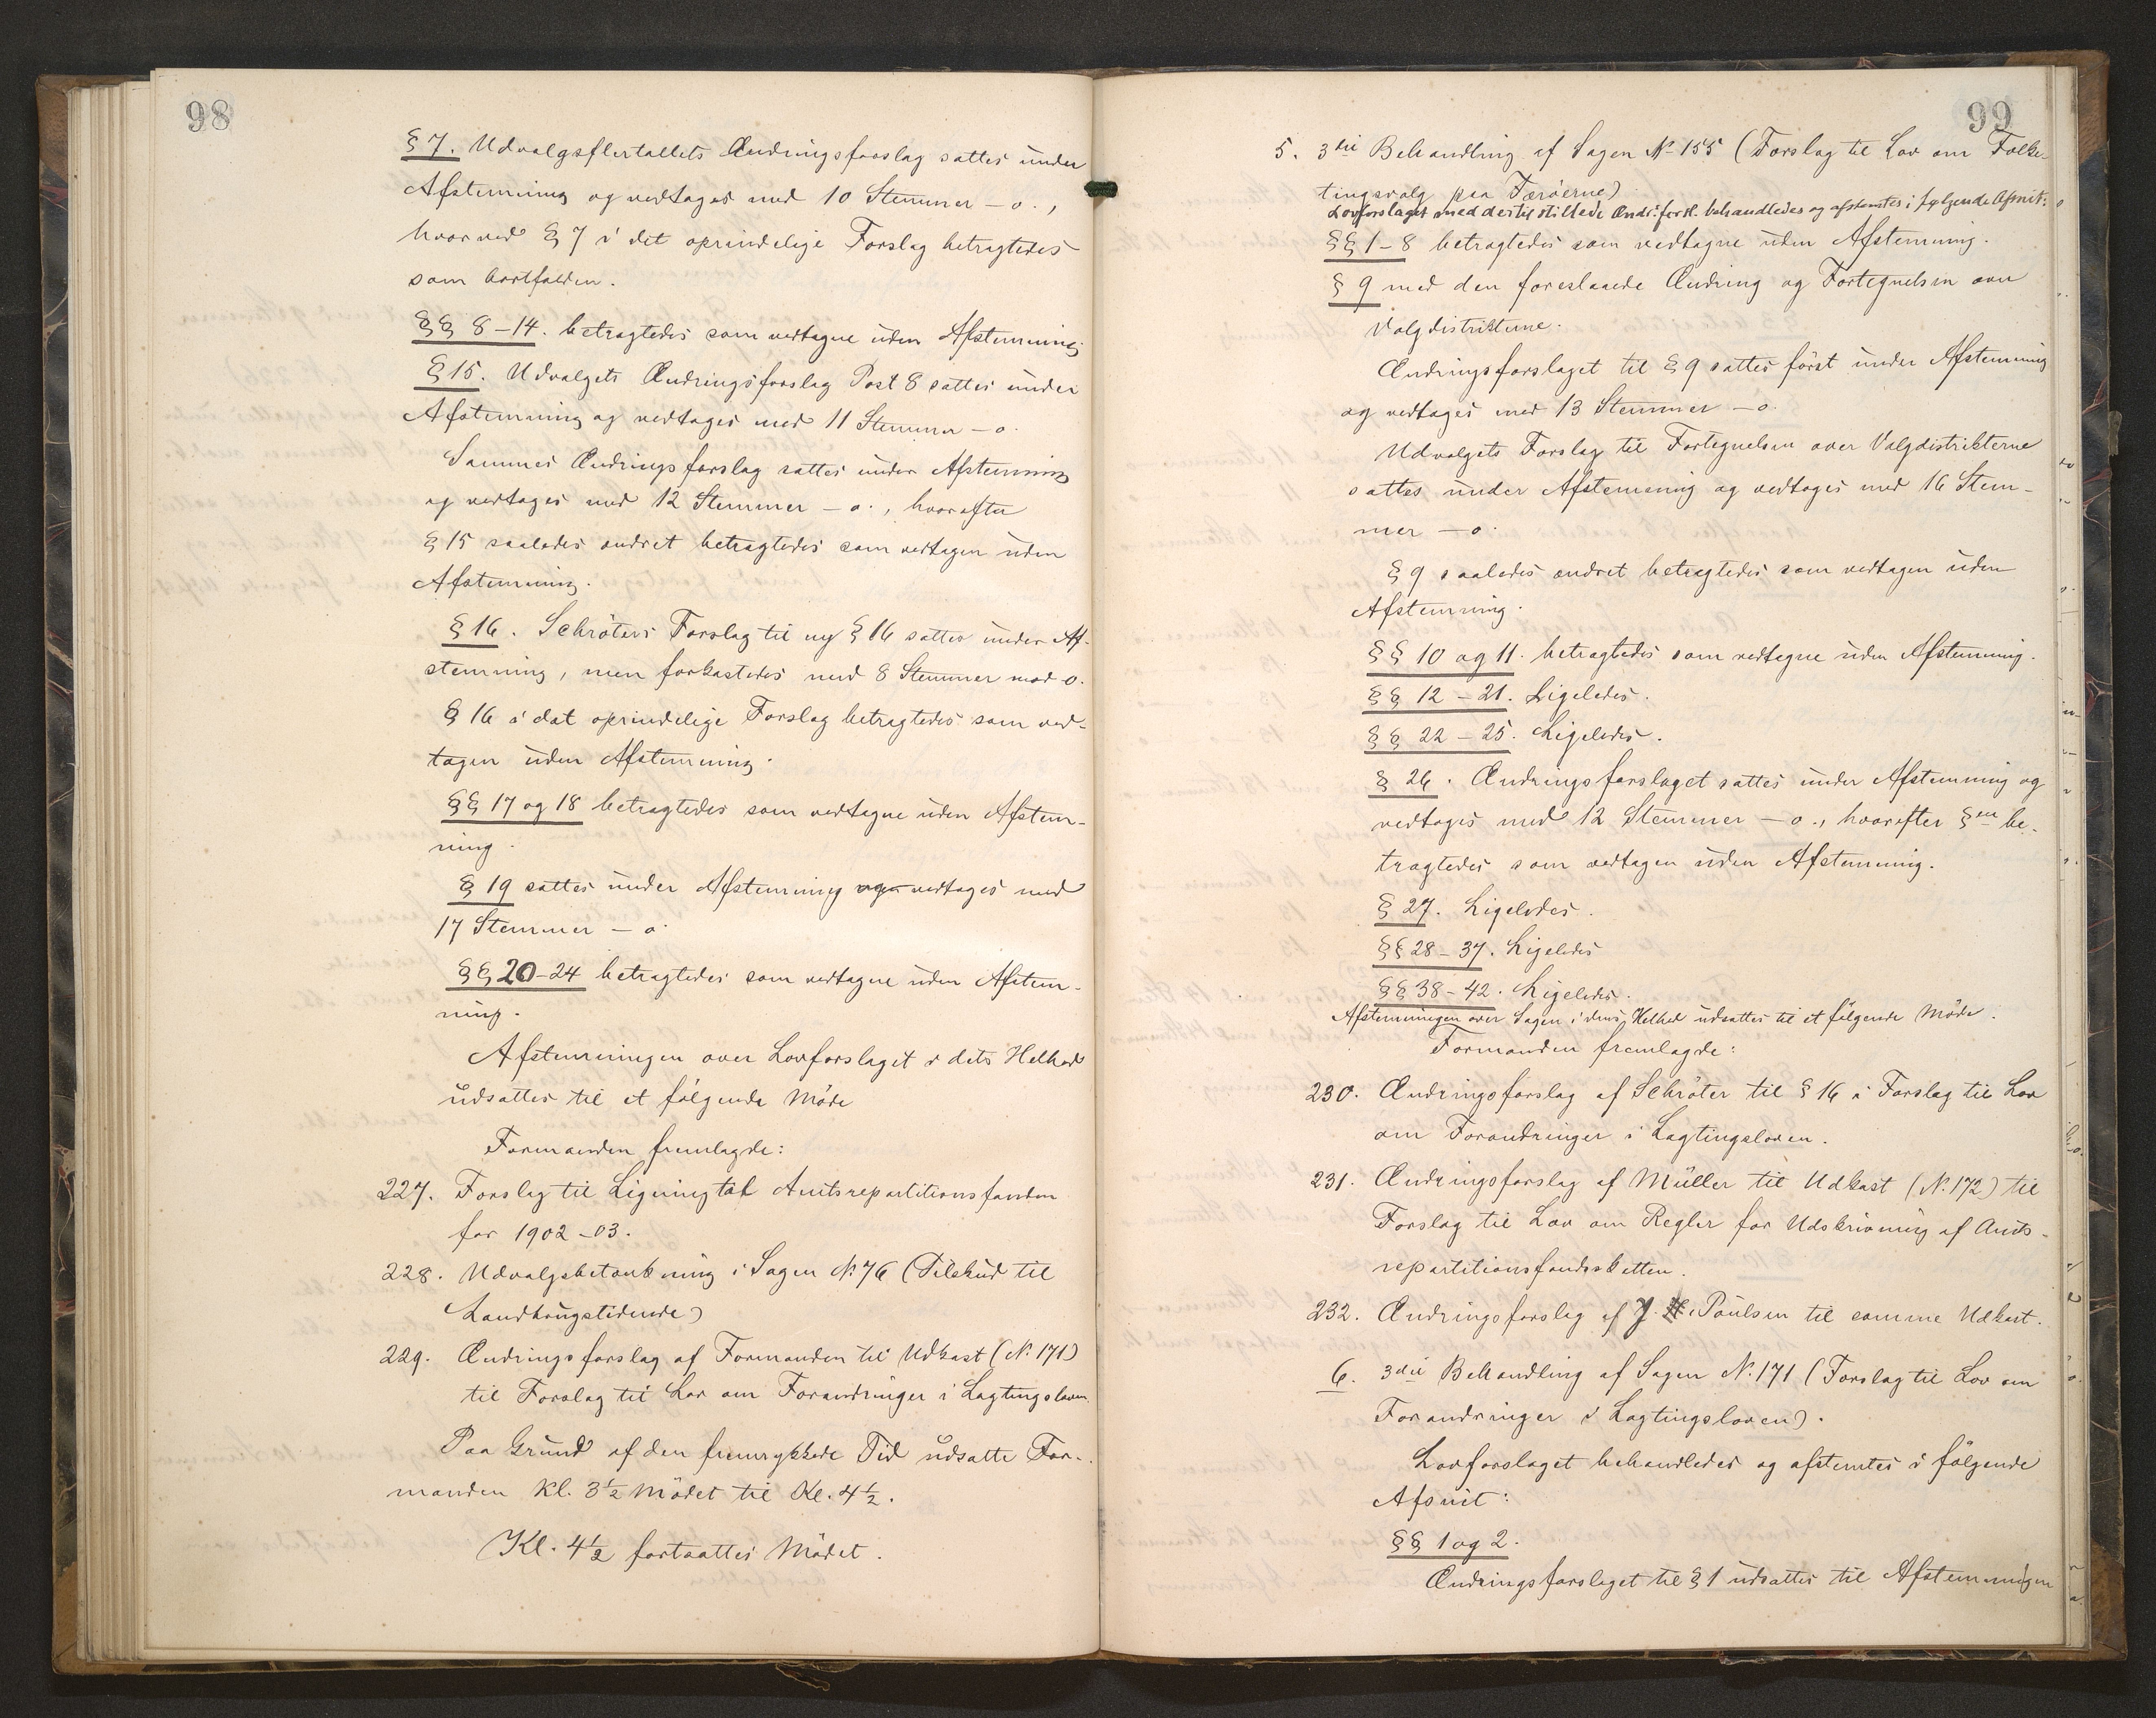 98
§ 7. Udvalgsflertallets Ændringsforslag sattes under
Afstemning og vedtoges med 10 Stemmer – o.,
hvorved § 7 i det oprindelige Forslag betragtedes
som bortfalden.
§§ 8–14. betragtedes som vedtagne uden Afstemning.
§ 15. Udvalgets Ændringsforslag Post 8 sattes under
Afstemning og vedtoges med 11 Stemmer – o.
Sammes Ændringsforslag sattes under Afstemning
og vedtoges med 12 Stemmer – o., hvorefter
§ 15 saaledes ændret betragtedes som vedtagen uden
Afstemning.
§ 16. Schröters Forslag til ny § 16 sattes under Af-
stemning, men forkastedes med 8 Stemmer mod o.
§ 16 i det oprindelige Forslag betragtedes som ved-
tagen uden Afstemning.
§§ 17 og 18 betragtedes som vedtagne uden Afstem-
ning.
§ 19 sattes under Afstemning og vedtoges med
17 Stemmer – o.
§§ 20–24 betragtedes som vedtagne uden Afstem-
ning.
Afstemningen over Lovforslaget i dets Helhed
udsattes til et følgende Møde
Formanden fremlagde:
227. Forslag til Ligning til Amtsrepartitionsfonden
for 1902–03.
228. Udvalgsbetænkning i Sagen N. 76 (Tilskud til
Landbrugstidende)
229. Ændringsforslag af Formanden til Udkast (N. 171)
til Forslag til Lov om Forandringer i Lagtingsloven.
Paa Grund af den fremrykkede Tid udsatte For-
manden Kl. 3½ Mødet til Kl. 4½.
Kl. 4½ fortsattes Mødet.
99
5. 3die Behandling af Sagen No 155 (Forslag til Lov om Folke-
tingsvalg paa Færöerne)
Lovforslaget med dertil stillede Ændr.forsl. behandledes og afstemtes i følgende Afsnit:
§§ 1–8 betragtedes som vedtagne uden Afstemning.
§ 9 med den foreslaaede Ændring og Fortegnelsen over
Valgdistrikterne.
Ændringsforslaget til § 9 sattes först under Afstemning
og vedtoges med 13 Stemmer – o.
Udvalgets Forslag til Fortegnelsen over Valgdistrikterne
sattes under Afstemning og vedtoges med 16 Stem-
mer – o.
§ 9 saaledes ændret betragtedes som vedtagen uden
Afstemning.
§§ 10 og 11. betragtedes som vedtagne uden Afstemning.
§§ 12–21. Ligeledes.
§§ 22–25. Ligeledes.
§ 26. Ændringsforslaget sattes under Afstemning og
vedtoges med 12 Stemmer – o., hvorefter §en be-
tragtedes som vedtagen uden Afstemning.
§ 27. Ligeledes.
§§ 28–37. Ligeledes
§§ 38–42. Ligeledes.
Afstemningen over Sagen i dens Helhed udsattes til et følgende Møde.
Formanden fremlagde:
230. Ændringsforslag af Schröter til § 16 i Forslag til Lov
om Forandringer i Lagtingsloven.
231. Ændringsforslag af Müller til Udkast (N. 172) til
Forslag til Lov om Regler for Udskrivning af Amts-
repartitionsfondsskatten.
232. Ændringsforslag af J. Poulsen til samme Udkast.
6. 3die Behandling af Sagen N. 171 (Forslag til Lov om
Forandringer i Lagtingsloven).
Lovforslaget behandledes og afstemtes i følgende
Afsnit:
§§ 1 og 2.
Ændringsforslaget til § 1 udsattes til Afstemningen